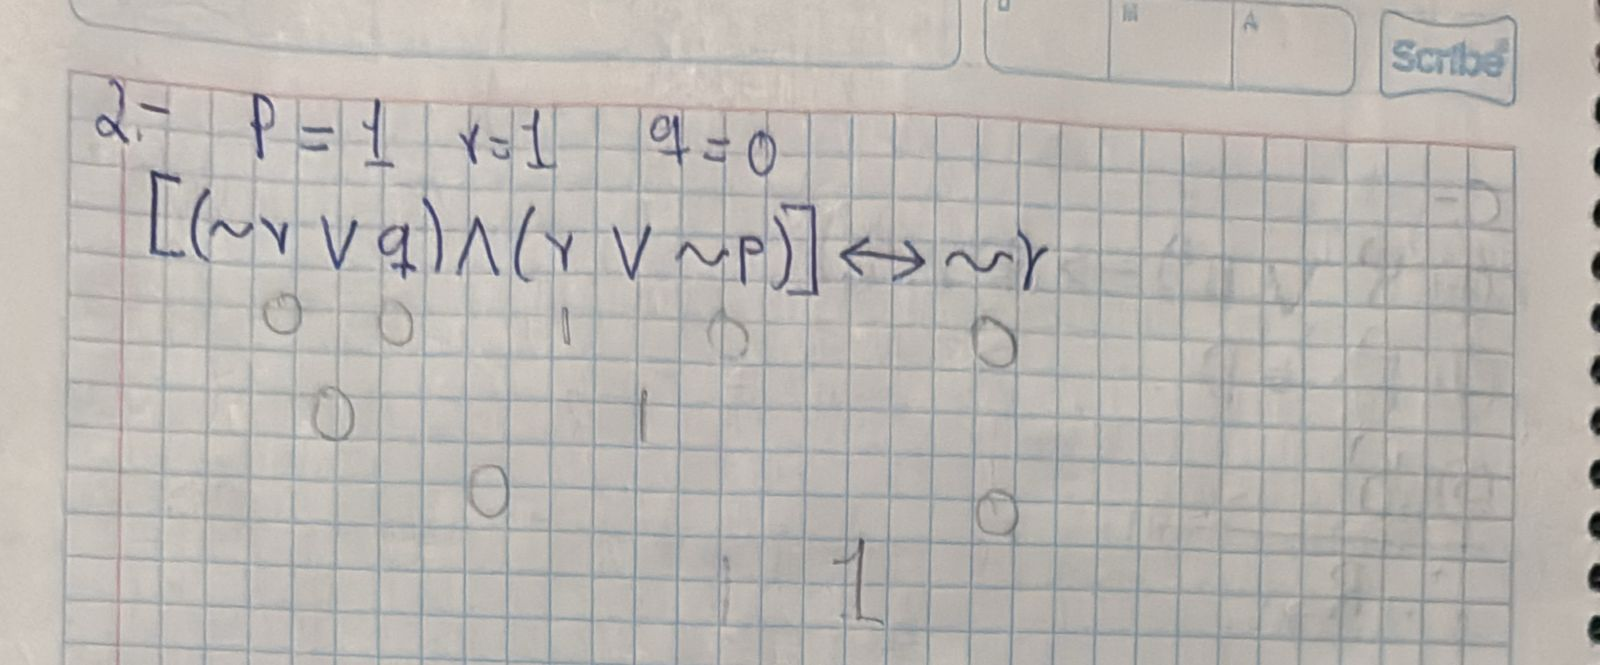 M A Scribe
2.- P = 1 r = 1 q = 0
[(~r ∨ q) ∧ (r ∨ ~p)] ↔ ~r
0 0 1 0 0
0 1
0 0
1